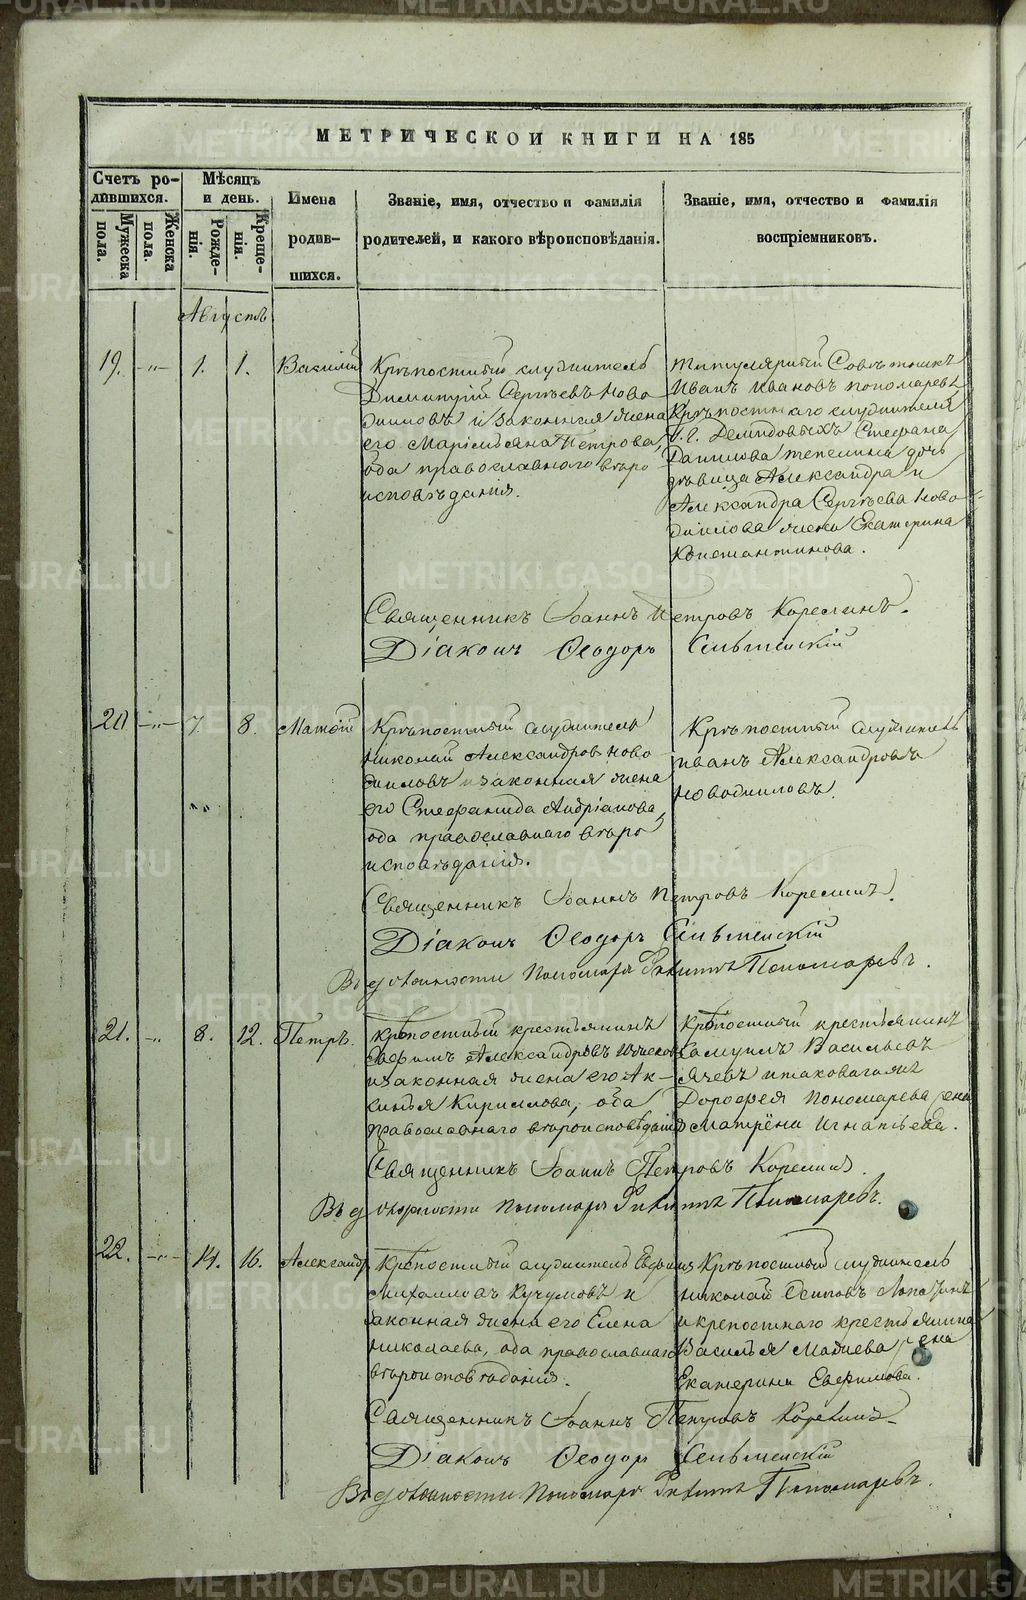 МЕТРИЧЕСКОЙ КНИГИ НА 185
Счетъ ро-
дившихся.
Мѣсяцъ
и день.
Мужеска
пола.
Женска
пола.
Рожде-
нія.
Креще-
нія.
Имена
родив-
шихся.
Званіе, имя, отчество и фамилія
родителей, и какого вѣроисповѣданія.
Званіе, имя, отчество и фамилія
воспріемниковъ.
Августъ
19. -"- 1. 1. Василій
Крѣпостный служитель
Димитрій Сергѣевъ Ново-
и законная жена
его Петрова,
оба православнаго вѣро
исповѣданія.
Титулярный Совѣтникъ
Иванъ Ивановъ Пономаревъ
Крѣпостнаго служителя
Г. г. Демидовыхъ Стефана
Данилова дочь
дѣвица Александра и
Александра Сергѣева Ново-
жена Екатерина
Константинова.
Священникъ Іоаннъ Петровъ Корелинъ.
Діаконъ Ѳеодоръ
20 -"- 7. 8. Матѳій
Крѣпостный служитель
Николай Александровъ Ново-
и законная жена
его Стефанида Андріанова,
оба православнаго вѣро
исповѣданія.
Крѣпостный служитель
Иванъ Александровъ
Священникъ Іоаннъ Петровъ Корелинъ.
Діаконъ Ѳеодоръ
Въ должности Пономаря Пономаревъ.
21. -"- 8. 12. Петръ.
Крѣпостный крестьянинъ
Александровъ
и законная жена его Ак-
синья Кирилова, оба
православнаго вѣроисповѣданія
Крѣпостный крестьянинъ
Самуилъ Васильевъ
Дорофея Пономарева жена
Матрёна Игнатьева.
Священникъ Іоаннъ Петровъ Корелинъ.
Въ должности пономаря Пономаревъ.
22. -"- 14. 16. Александр
Крѣпостный служитель
Михайловъ Кучумовъ и
законная жена его Елена
Николаева, оба православнаго
вѣроисповѣданія.
Крѣпостный служитель
Николай Осиповъ Лопатинъ
и крепостнаго крестьянина
Василья жена
Екатерина Евфимова.
Священникъ Іоаннъ Петровъ Корелинъ
Діаконъ Ѳеодор
Въ должности Пономаря Пономаревъ.
METRIKI.GASO-URAL.RU